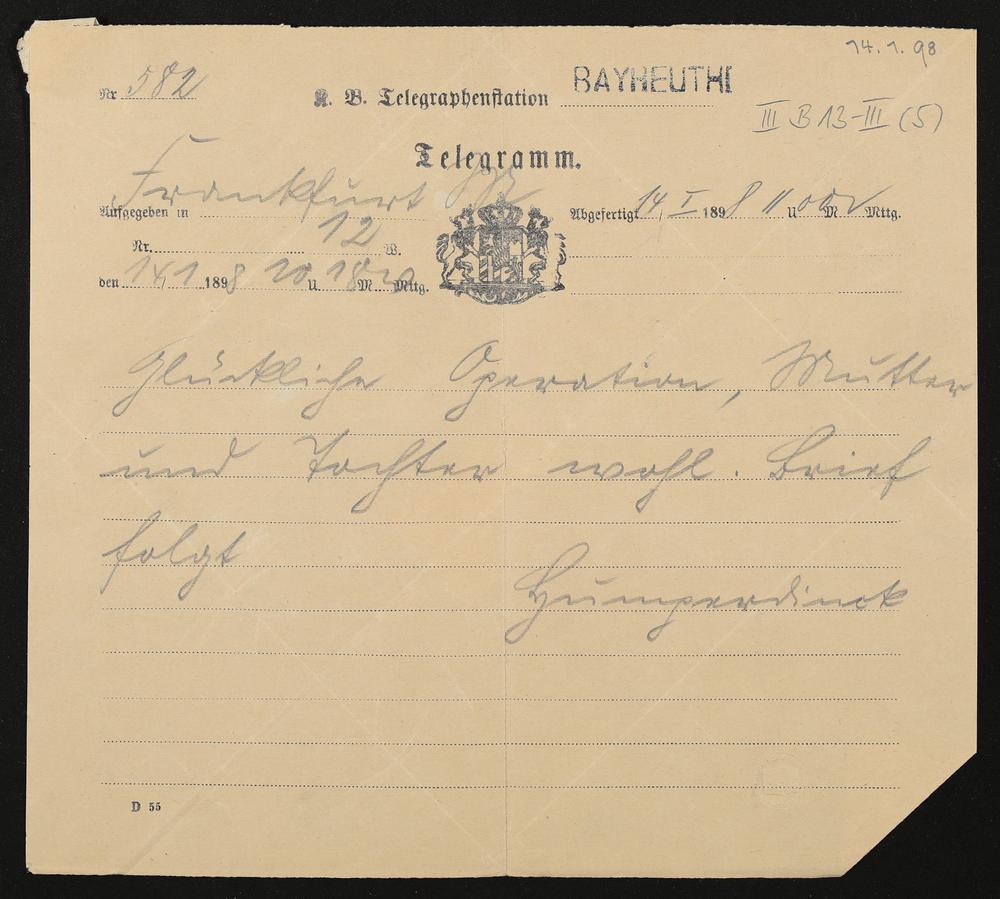 14.1.98
Nr 582
K. B. Telegraphenstation BAYREUTH
III B 13-III (5)
Telegramm.
Aufgegeben in Frankfurt
Abgefertigt 14/I 1898 11 U 00 M V Mttg.
Nr. 12 W.
den 14/1 1898 10 U 18 M Mttg.
Glückliche Operation, Mutter
und Tochter wohl. Brief
folgt
Humperdinck
D 55